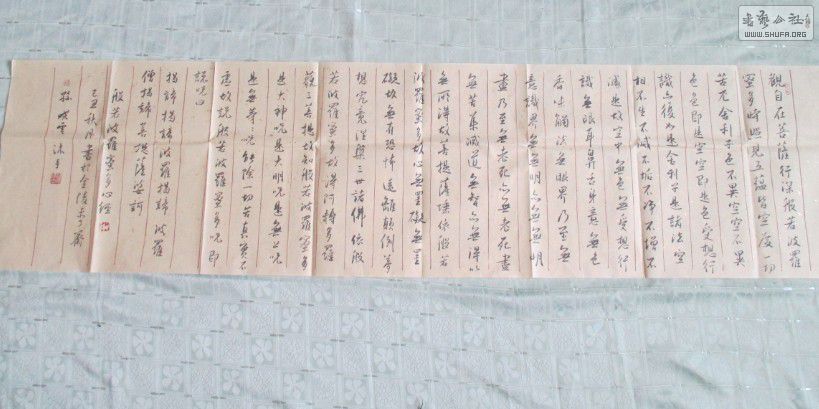 觀自在菩薩行深般若波羅
蜜多時照見五蘊皆空度一切
苦厄舍利子色不異空空不異
色色即是空空即是色受想行
識亦復如是舍利子是諸法空
相不生不滅不垢不淨不增不
減是故空中無色無受想行
識無眼耳鼻舌身意無色
香味觸法無眼界乃至無
意識界無無明亦無無明
盡乃至無老死亦無老死盡
無苦集滅道無智亦無得以
無所得故菩提薩埵依般若
波羅蜜多故心無罣礙無罣
礙故無有恐怖遠離顛倒夢
想究竟涅槃三世諸佛依般
若波羅蜜多故得阿耨多羅
藐三菩提故知般若波羅蜜多
是大神咒是大明咒是無上咒
是無等々咒能除一切苦真實不
虛故説般若波羅蜜多咒即
説咒曰
揭諦揭諦波羅揭諦波羅
僧揭諦菩提薩婆訶
般若波羅蜜多心經
己丑秋月書於金陵
沐手
書藝公社
WWW.SHUFA.ORG